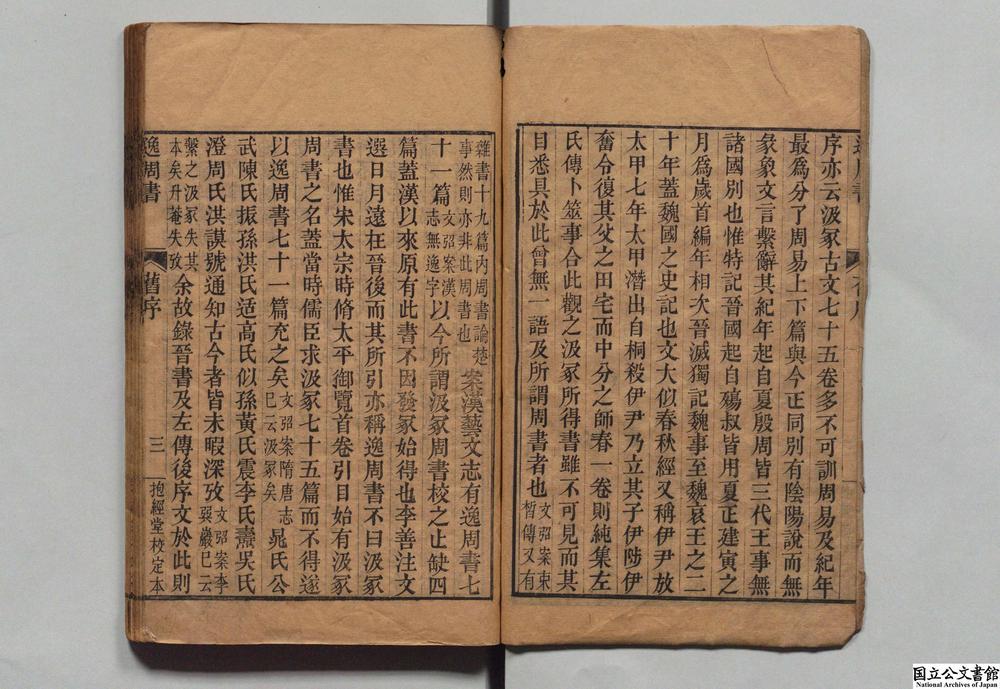 序亦云汲冢古文七十五卷多不可訓周易及紀年
最爲分了周易上下篇與今正同別有陰陽說而無
彖象文言繫辭其紀年起自夏殷周皆三代王事無
諸國別也惟特記晉國起自殤叔皆用夏正建寅之
月爲歲首編年相次晉滅獨記魏事至魏哀王之二
十年蓋魏國之史記也文大似春秋經又稱伊尹放
太甲七年太甲潛出自桐殺伊尹乃立其子伊陟伊
奮令復其父之田宅而中分之師春一卷則純集左
氏傳卜筮事合此觀之汲冢所得書雖不可見而其
目悉具於此曾無一語及所謂周書者也文弨案束晳傳又有
雜書十九篇內周書論楚事然則亦非此周書也案漢藝文志有逸周書七
十一篇文弨案漢志無逸字以今所謂汲冢周書校之止缺四
篇蓋漢以來原有此書不因發冢始得也李善注文
選日月遠在晉後而其所引亦稱逸周書不曰汲冢
書也惟宋太宗時脩太平御覽首卷引目始有汲冢
周書之名蓋當時儒臣求汲冢七十五篇而不得遂
以逸周書七十一篇充之矣文弨案隋唐志巳云汲冢矣晁氏公
武陳氏振孫洪氏适高氏似孫黃氏震李氏燾吳氏
澄周氏洪謨號通知古今者皆未暇深攷文弨案李巽巖巳云
繫之汲冢失其本矣升菴失攷余故錄晉書及左傳後序文於此則
逸周書 舊序 三 抱經堂校定本
国立公文書館
National Archives of Japan